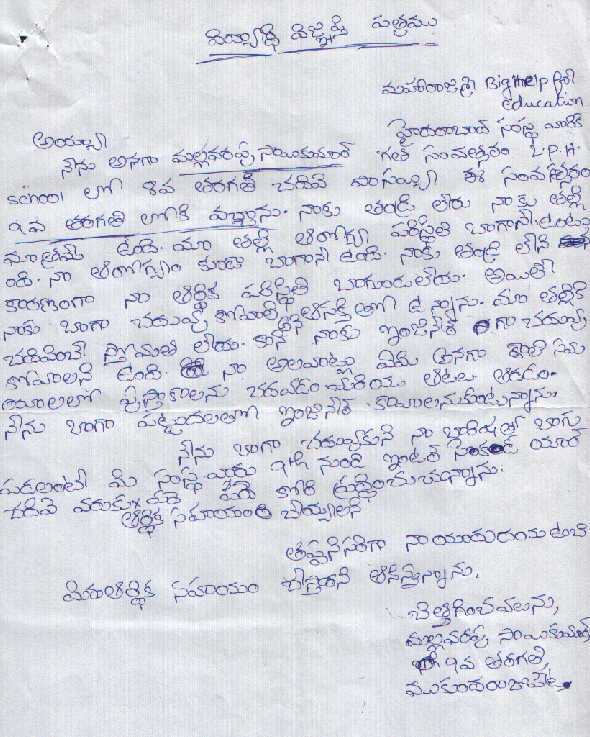 విద్యార్థి విజ్ఞప్తి పత్రము
మహారాజశ్రీ Big Help for
Education
అయ్యా హైదరాబాద్ సంస్థ వారికి
నేను అనగా మల్లవరపు సాయికుమార్ గత సంవత్సరం Z.P.H.
school లో 8వ తరగతి చదివే వాన్ని ఈ సంవత్సరం
9వ తరగతి లోకి వచ్చాను. నాకు తండ్రి లేరు నాకు తల్లి
మాత్రమే ఉంది. మా తల్లి ఆరోగ్య పరిస్థితి బాగానే ఉంటు
ంది. నా ఆరోగ్యం కూడా బాగానే ఉంది. నాకు తండ్రి లేని
కారణంగా నా ఆర్థిక పరిస్థితి బాగుండలేదు. అయితే
నాకు బాగా చదువు కోవాలనే ఆసక్తి తో ఉన్నాను. మా తల్లికి
చదివించే స్తోమత లేదు. కానీ నాకు ఇంజినీర్ గా చదువు
కోవాలని ఉంది. నా అలవాట్లు ఏమి అనగా ఖాళీ సమ
యాలలో పుస్తకాలను చదవడం మరియు ఆటలు ఆడడం.
నేను బాగా పట్టుదలతో ఇంజినీర్ కావాలనుకుంటున్నాను.
నేను బాగా చదువుకుని నా భవిష్యత్ బాగు
పడాలంటే మీ సంస్థ వారు 9th నుండి ఇంటర్ సెకండ్ యార్
చదివే వరకు మీరు కోరి ప్రార్థించుచున్నాను.
ఆర్థిక సహాయం చేయాలని
తప్పనిసరిగా నా యందు దయ ఉంచి
మీరు ఆర్థిక సహాయం చేస్తారని ఆశిస్తున్నాను.
చిత్తగించవలను,
మల్లవరపు సాయికుమార్
9వ తరగతి,
ముకుందాపురం.